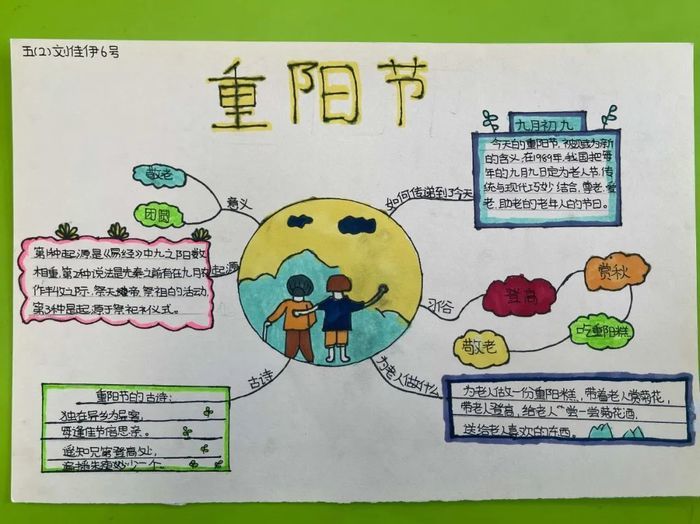 五(2)刘佳伊6号
重阳节
九月初九
今天的重阳节,被赋为新
的含义,在1989年,我国把每
年的九月九日定为老人节,传
统与现代巧妙结合,尊老,爱
老,助老的老年人的节日。
如何传递到了今天
敬老
团圆
意义
第1种起源是《易经》中九之阳数
相重,第2种说法是先秦之所有在九月有
作丰收之际,祭天
祭祖的活动,
第3种是起源于祭祀礼仪式。
起源
习俗
登高
赏秋
吃重阳糕
敬老
古诗
重阳节的古诗:
独在异乡为异客,
每逢佳节倍思亲。
遥知兄弟登高处,
遍插茱萸少一个。
为老人做什么
为老人做一份重阳糕,带着老人赏菊花,
带老人登高,给老人尝一尝菊花酒,
送给老人喜欢的东西。